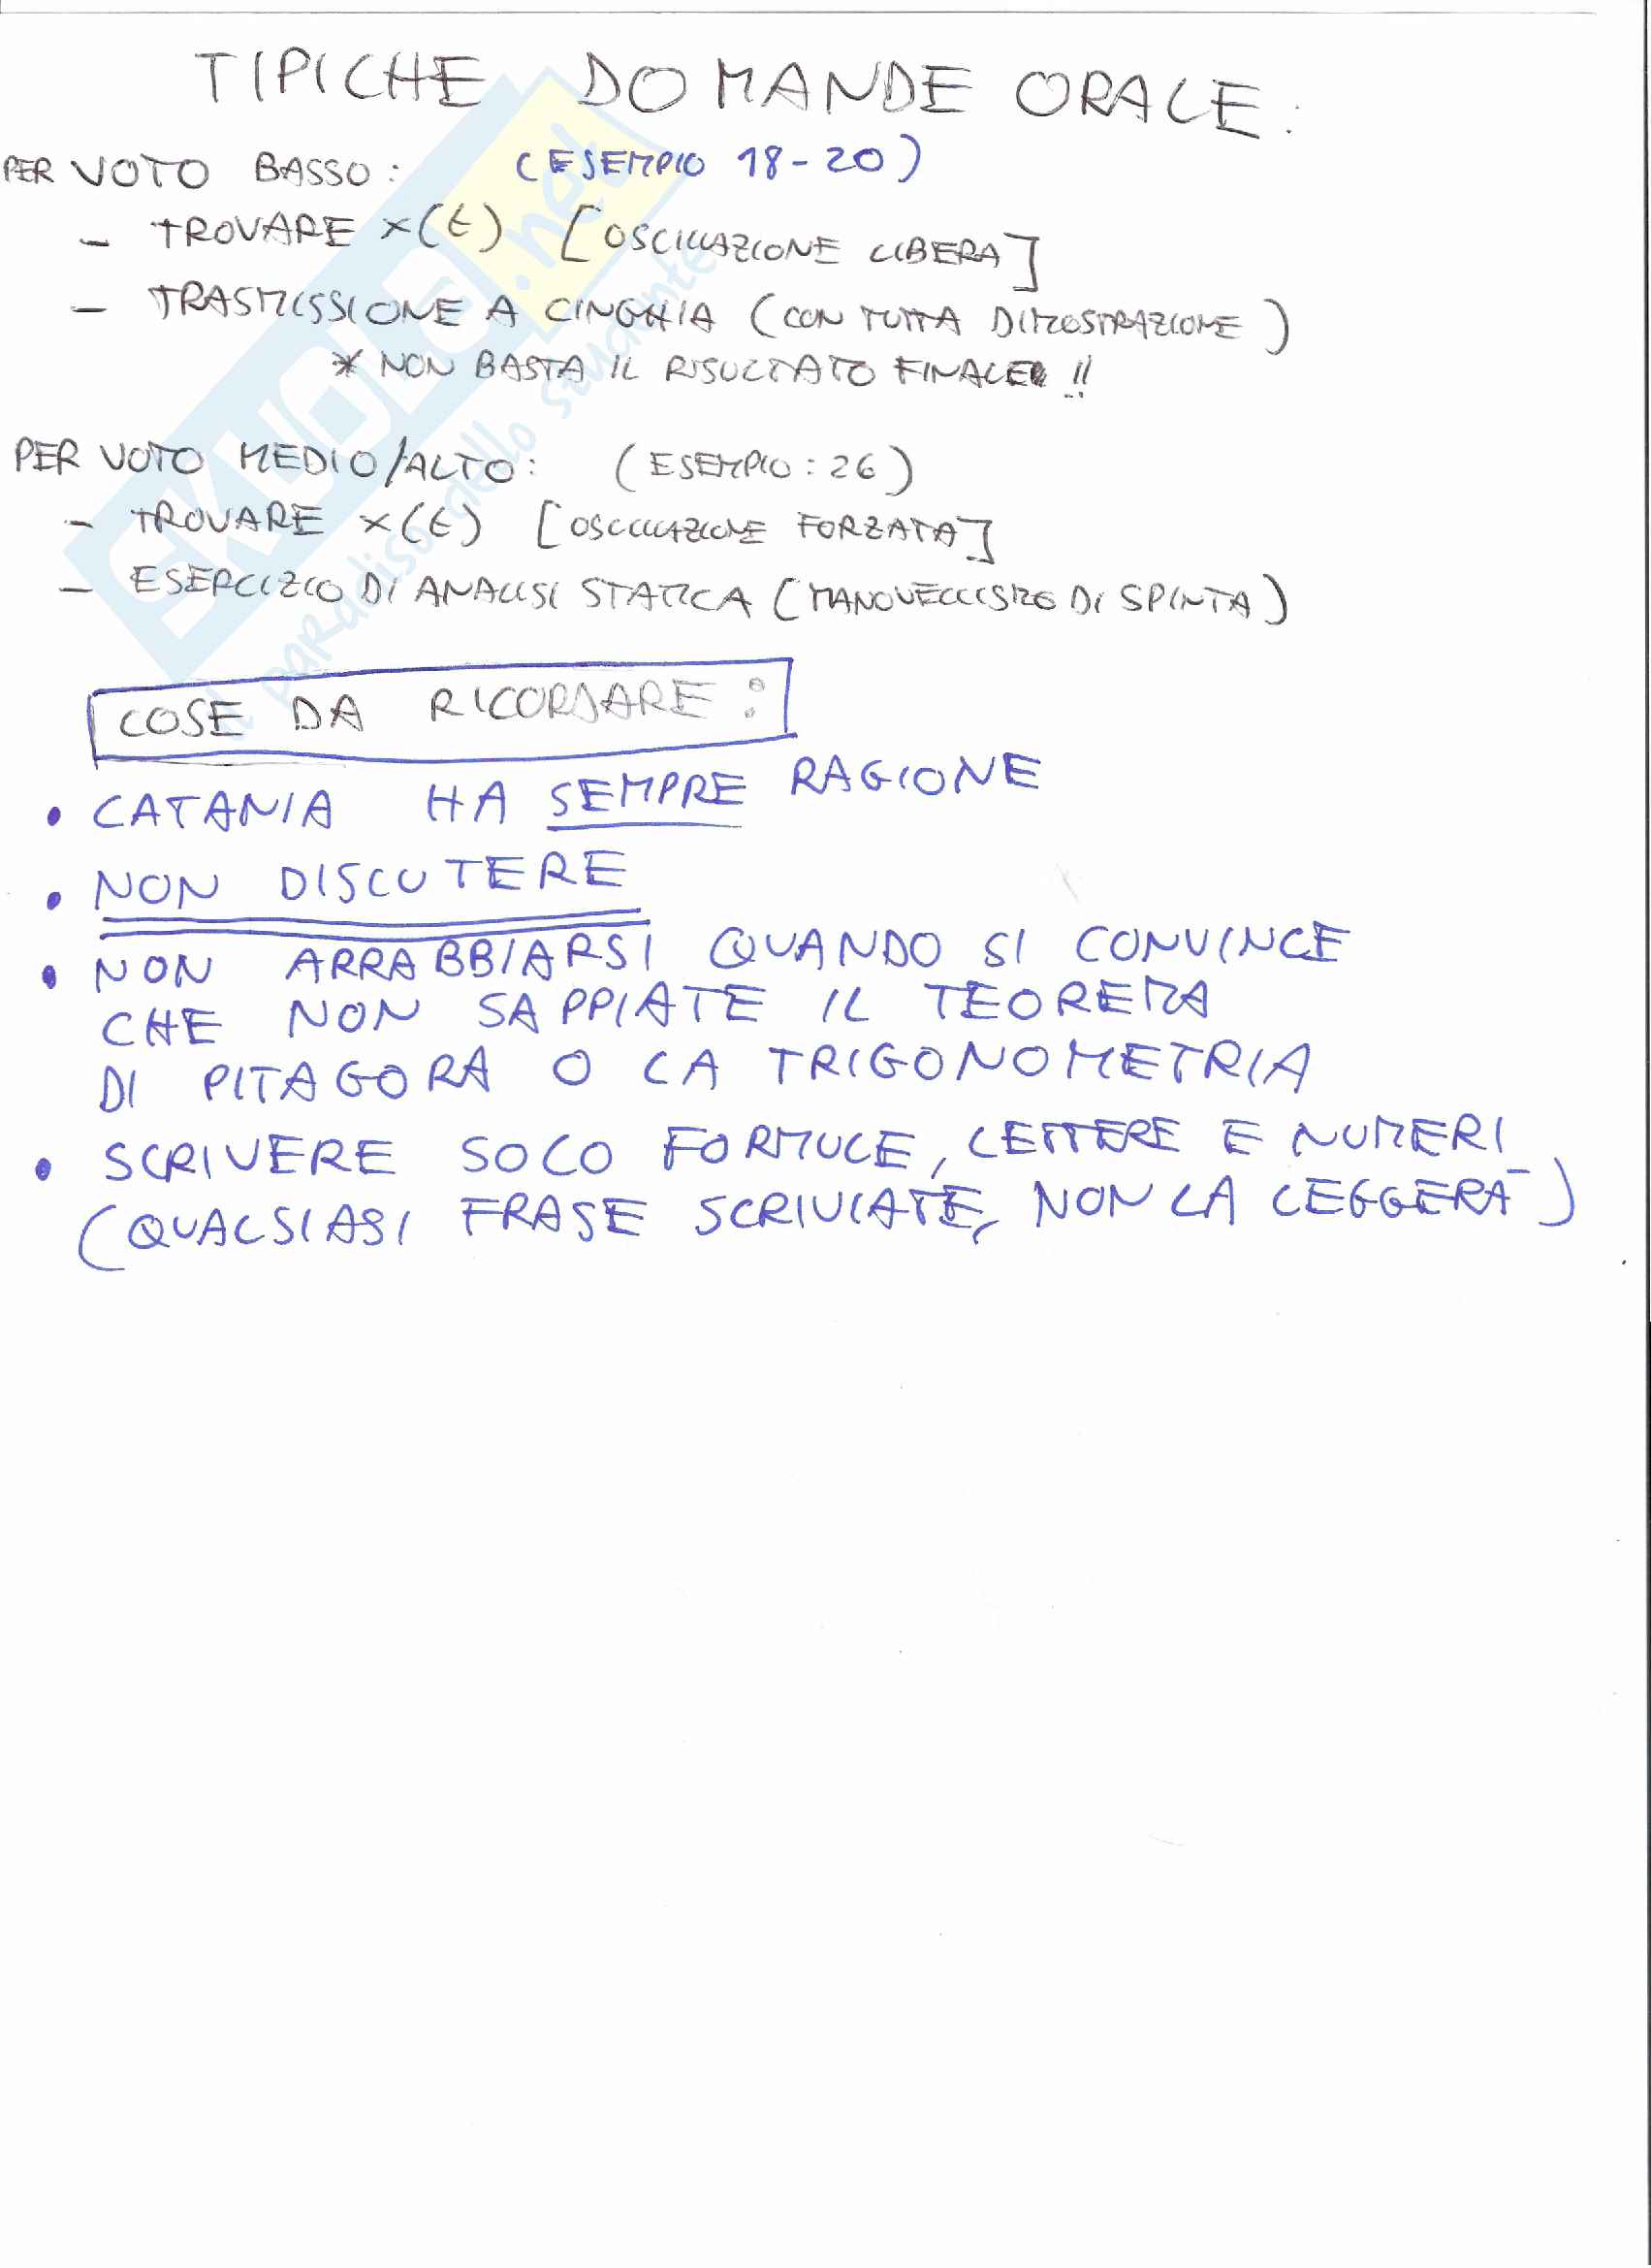 TIPICHE DOMANDE ORALE:
PER VOTO BASSO: (ESEMPIO 18-20)
- TROVARE x(t) [OSCILLAZIONE LIBERA]
- TRASMISSIONE A CINGHIA (CON TUTTA DIMOSTRAZIONE)
* NON BASTA IL RISULTATO FINALE !!
PER VOTO MEDIO/ALTO: (ESEMPIO: 26)
- TROVARE x(t) [OSCILLAZIONE FORZATA]
- ESERCIZIO DI ANALISI STATICA (MANOVELLISMO DI SPINTA)
COSE DA RICORDARE:
• CATANIA HA SEMPRE RAGIONE
• NON DISCUTERE
• NON ARRABBIARSI QUANDO SI CONVINCE
CHE NON SAPPIATE IL TEOREMA
DI PITAGORA O LA TRIGONOMETRIA
• SCRIVERE SOLO FORMULE, LETTERE E NUMERI
(QUALSIASI FRASE SCRIVIATE, NON LA LEGGERÀ)
SKUOLA.net
il paradiso dello studente